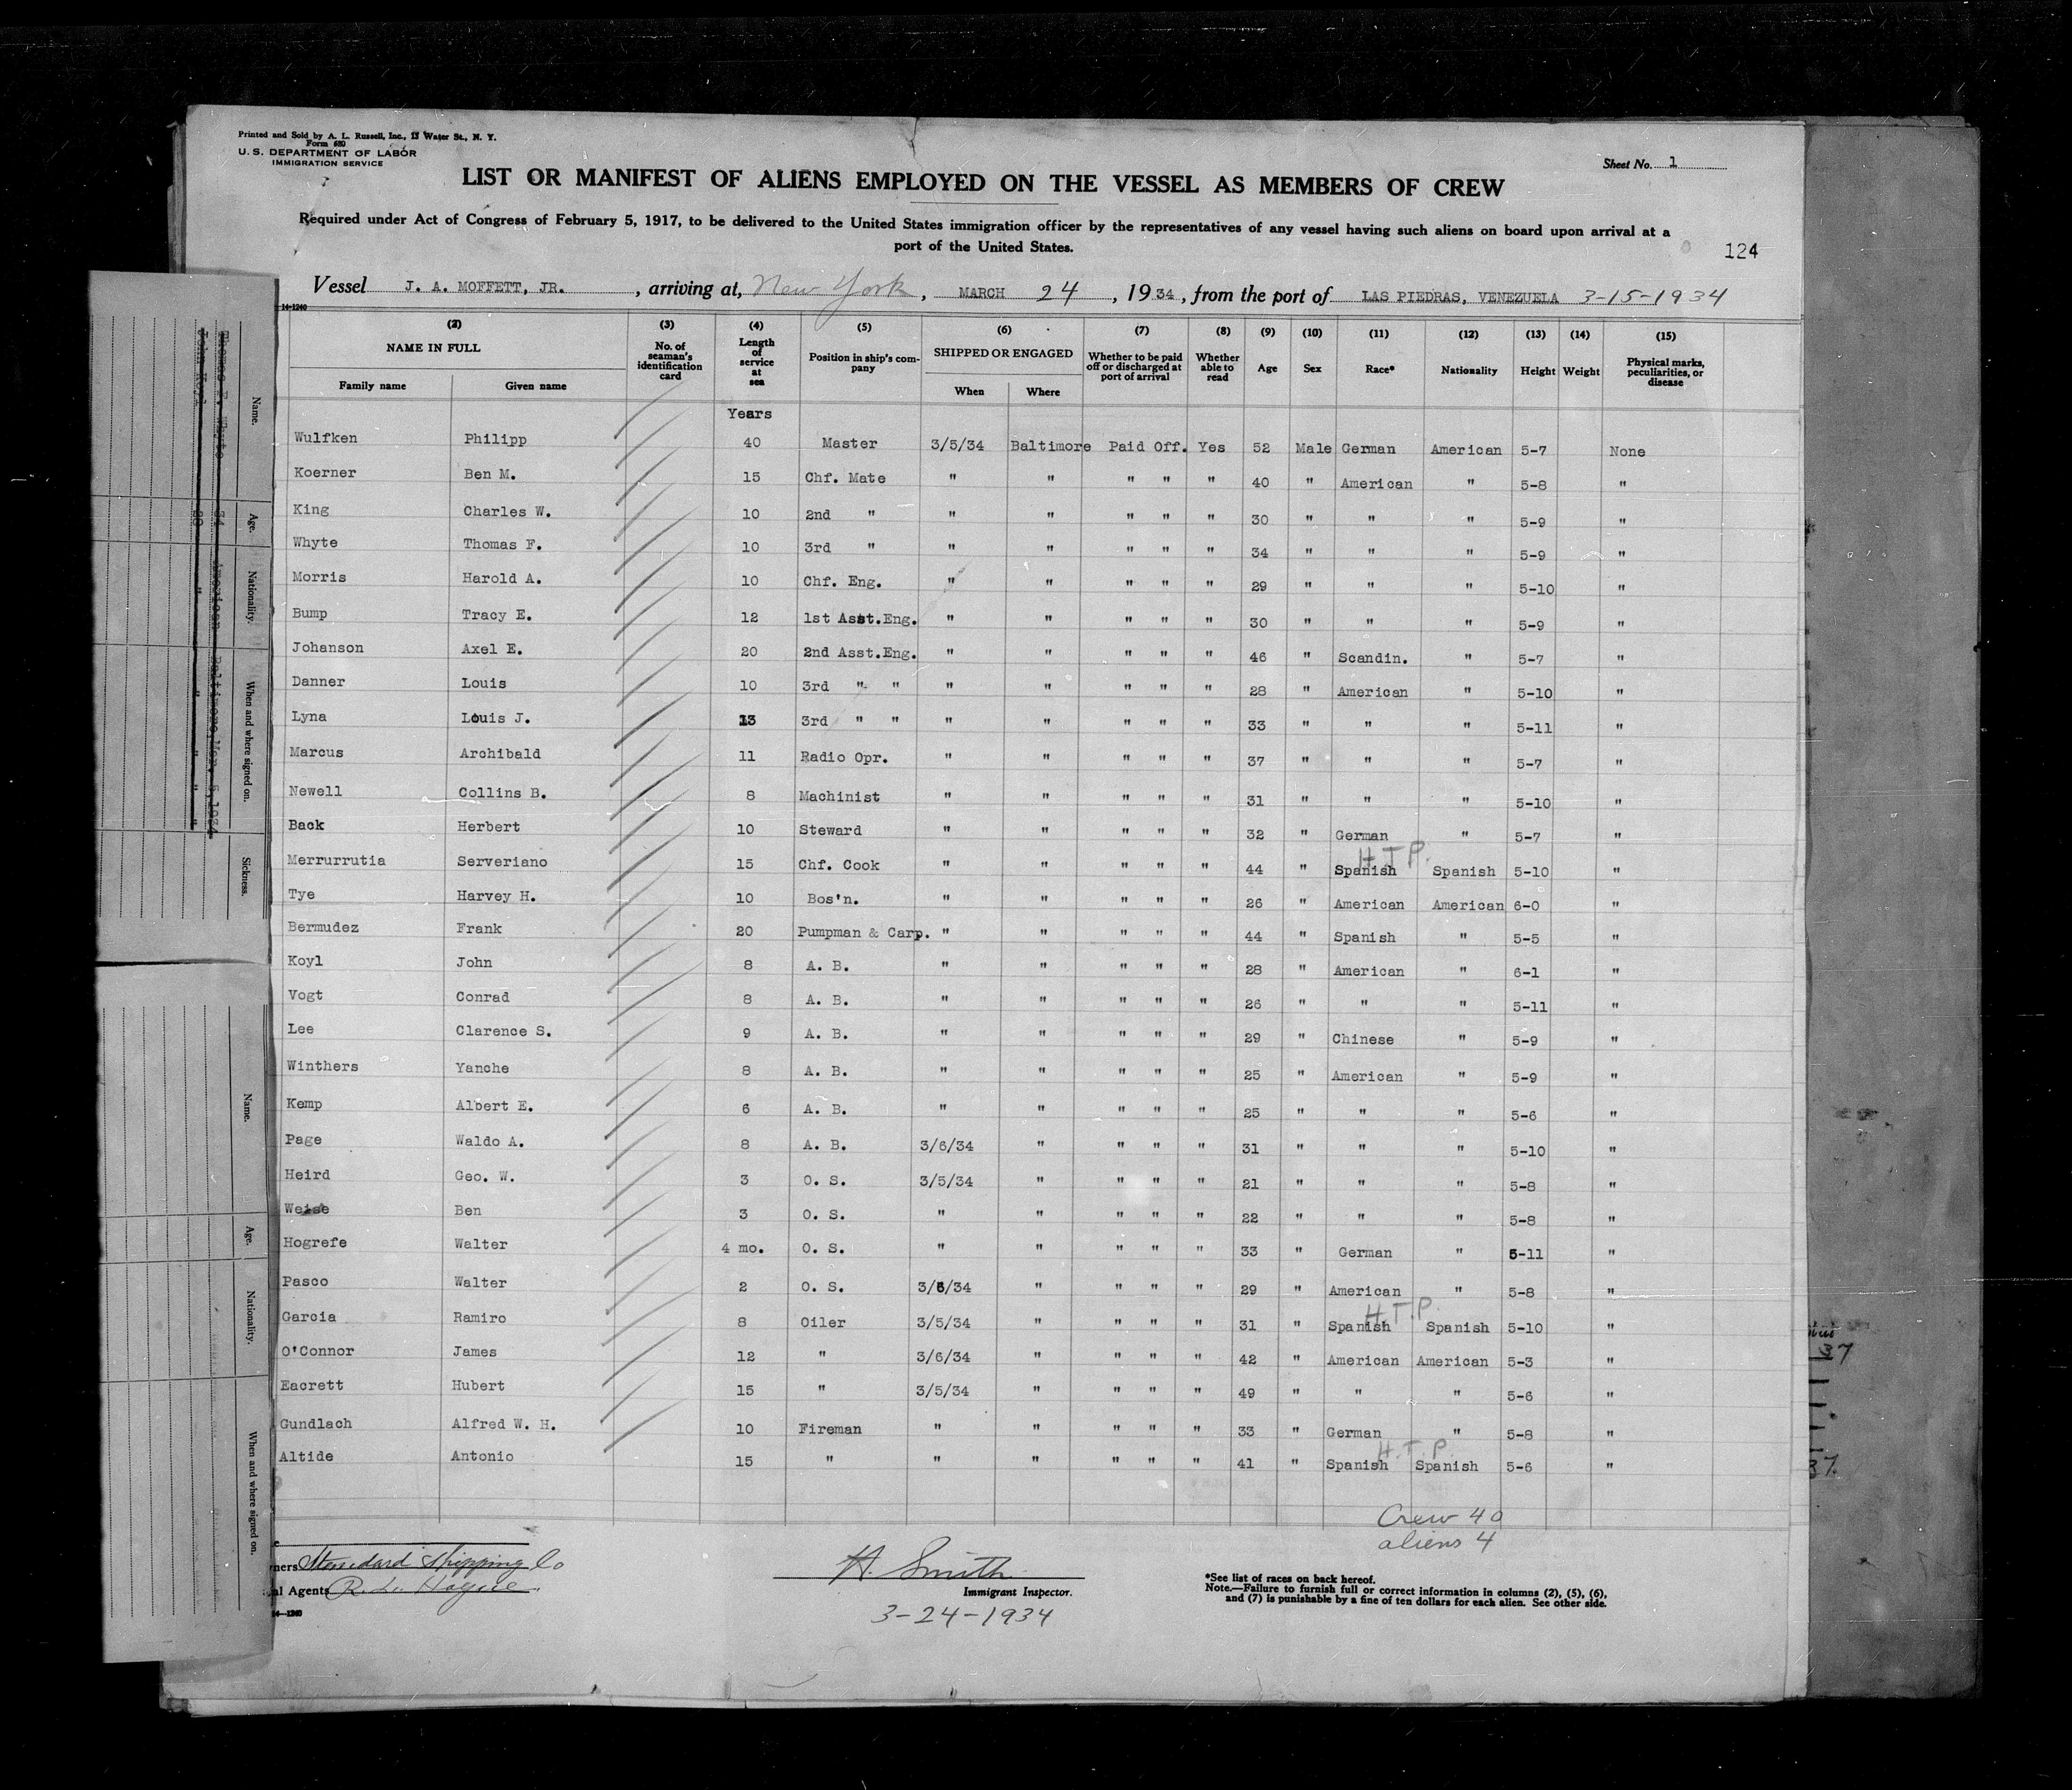 Printed and Sold by A. L. Russell, Inc., 13 Water St., N. Y.
Form 680
U. S. DEPARTMENT OF LABOR
IMMIGRATION SERVICE
Sheet No. 1
LIST OR MANIFEST OF ALIENS EMPLOYED ON THE VESSEL AS MEMBERS OF CREW
Required under Act of Congress of February 5, 1917, to be delivered to the United States immigration officer by the representatives of any vessel having such aliens on board upon arrival at a
port of the United States.
124
Vessel J. A. MOFFETT, JR., arriving at, New York, MARCH 24, 1934, from the port of LAS PIEDRAS, VENEZUELA 3-15-1934
14-1240
(2) (3) (4) (5) (6) (7) (8) (9) (10) (11) (12) (13) (14) (15)
NAME IN FULL No. of seaman's identification card Length of service at sea Position in ship's company SHIPPED OR ENGAGED Whether to be paid off or discharged at port of arrival Whether able to read Age Sex Race* Nationality Height Weight Physical marks, peculiarities, or disease
Family name Given name When Where
Years
Wulfken Philipp 40 Master 3/5/34 Baltimore Paid Off. Yes 52 Male German American 5-7 None
Koerner Ben M. 15 Chf. Mate " " " " " 40 " American " 5-8 "
King Charles W. 10 2nd " " " " " " 30 " " " 5-9 "
Whyte Thomas F. 10 3rd " " " " " " 34 " " " 5-9 "
Morris Harold A. 10 Chf. Eng. " " " " " 29 " " " 5-10 "
Bump Tracy E. 12 1st Asst.Eng. " " " " " 30 " " " 5-9 "
Johanson Axel E. 20 2nd Asst.Eng. " " " " " 46 " Scandin. " 5-7 "
Danner Louis 10 3rd " " " " " " " 28 " American " 5-10 "
Lyna Louis J. 13 3rd " " " " " " " 33 " " " 5-11 "
Marcus Archibald 11 Radio Opr. " " " " " 37 " " " 5-7 "
Newell Collins B. 8 Machinist " " " " " 31 " " " 5-10 "
Back Herbert 10 Steward " " " " " 32 " German " 5-7 "
H.T.P.
Merrurrutia Serveriano 15 Chf. Cook " " " " " 44 " Spanish Spanish 5-10 "
Tye Harvey H. 10 Bos'n. " " " " " 26 " American American 6-0 "
Bermudez Frank 20 Pumpman & Carp. " " " " " 44 " Spanish " 5-5 "
Koyl John 8 A. B. " " " " " 28 " American " 6-1 "
Vogt Conrad 8 A. B. " " " " " 26 " " " 5-11 "
Lee Clarence S. 9 A. B. " " " " " 29 " Chinese " 5-9 "
Winthers Yanche 8 A. B. " " " " " 25 " American " 5-9 "
Kemp Albert E. 6 A. B. " " " " " 25 " " " 5-6 "
Page Waldo A. 8 A. B. 3/6/34 " " " " 31 " " " 5-10 "
Heird Geo. W. 3 O. S. 3/5/34 " " " " 21 " " " 5-8 "
Weise Ben 3 O. S. " " " " " 22 " " " 5-8 "
Hogrefe Walter 4 mo. O. S. " " " " " 33 " German " 5-11 "
Pasco Walter 2 O. S. 3/6/34 " " " " 29 " American " 5-8 "
H.T.P.
Garcia Ramiro 8 Oiler 3/5/34 " " " " 31 " Spanish Spanish 5-10 "
O'Connor James 12 " 3/6/34 " " " " 42 " American American 5-3 "
Eacrett Hubert 15 " 3/5/34 " " " " 49 " " " 5-6 "
Gundlach Alfred W. H. 10 Fireman " " " " " 33 " German " 5-8 "
H.T.P.
Altide Antonio 15 " " " " " " 41 " Spanish Spanish 5-6 "
Crew 40
aliens 4
Standard Shipping Co
Agents R. L. Hague
14-1240
H. Smith
Immigrant Inspector.
3-24-1934
*See list of races on back hereof.
Note.—Failure to furnish full or correct information in columns (2), (5), (6),
and (7) is punishable by a fine of ten dollars for each alien. See other side.
Name. Age. Nationality. When and where signed on. Sickness.
Thomas F. Whyte 34 American Baltimore, Mar. 5, 1934
John Koyl 28 " " "
Name. Age. Nationality. When and where signed on.
37
37.